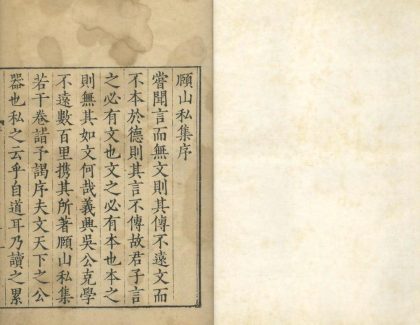 頋山私集序
嘗聞言而無文則其傳不遠文而
不本於德則其言不傳故君子言
之必有文也文之必有本也本之
則無其如文何哉義興吳公克學
不遠數百里携其所著頋山私集
若干卷詣予謁序夫文天下之公
器也私之云乎自道耳乃讀之累